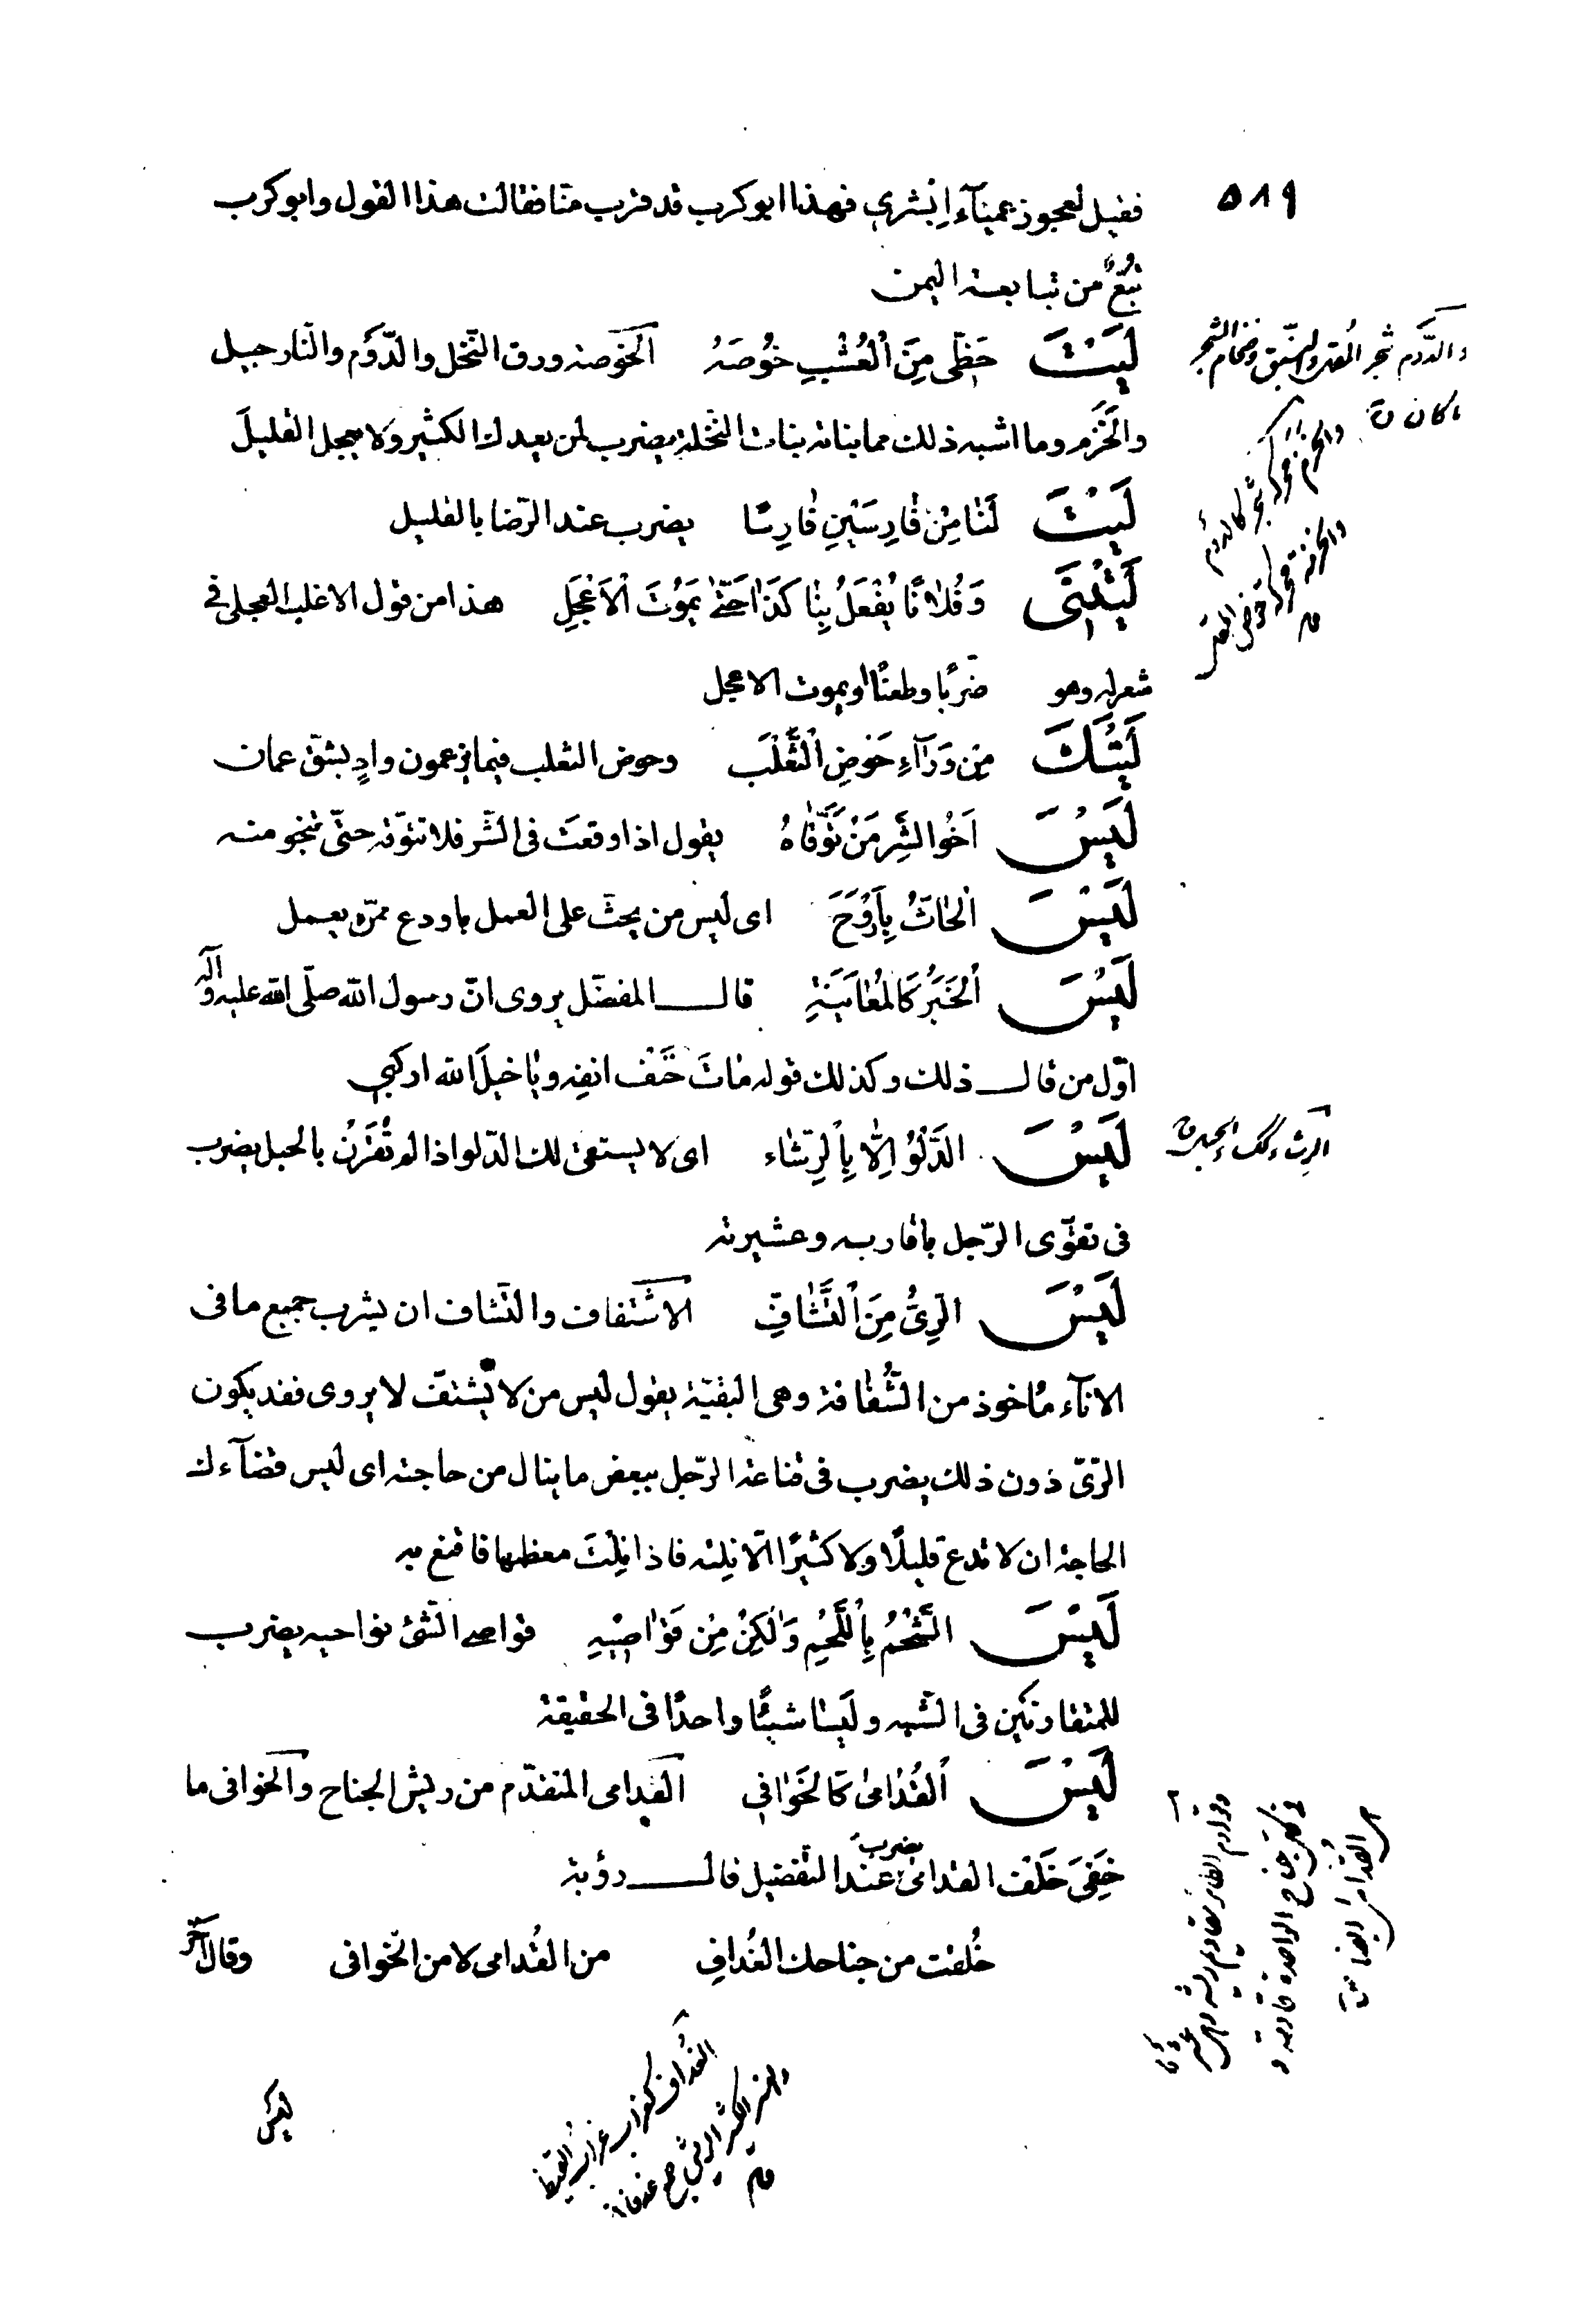 ٥٨٩
فقيل لعجوز عمياء اِبْشري فهذا ابو كرب قد قرب منّا فقالت هذا القول وابو كرب
تُبَّعٌ من تبابعة اليمن
لَيْتَ حَظّى مِنَ الْعُشْبِ خُوصَهُ الخوصة ورق النّخل والدّوْم والنّارجيل
والخَزَم وما اشبه ذلك مما نباته نبات النّخلة يضرب لمن يعدك الكثير ولا يعجل القليلَ
لَيْتَ لَنا مِنْ فارِسَيْنِ فارِسًا يضرب عند الرّضا بالقليل
لَيْتَنى وَفُلانًا يُفْعَلُ بِنا كَذا حَتّى يَمُوتَ الْاَعْجَلِ هذا من قول الاغلب العجلى فى
شعر له وهو ضربًا وطعنًا او يموت الاعجل
لَيْتَكَ مِن وَرَآءِ حَوْضِ الثَّعْلَب وحوض الثعلب فيما يزعمون وادٍ بشقّ عمان
لَيْسَ اَخُو الشَّرِ مَنْ تَوَقّاهُ يقول اذا وقعتَ فى الشّر فلا تتوّقه حتّى تنجو منه
لَيْسَ الْحاثُّ بِاَرْوَحَ اى ليس من يحثّ على العمل باودع ممّن يعمل
لَيْسَ الْخَبَرُ كَالْمُعايَنَةِ قال المفضّل يروى انّ رسول الله صلّى الله عليه وآله
اوّل من قال ذلك وكذلك قوله ماتَ حَتْف انفِه ويا خيلَ الله اركبي
لَيْسَ الدَّلْوُ اِلّا بِالرِشاء اى لا يستقى لك الدّلو اذا لم تُقْرَنْ بالحبل يضرب
الرشاء ككساء الحبل ق
فى تقوّى الرّجل باقاربه وعشيرته
لَيْسَ الرِىُّ مِنَ التَّشافِّ الاشْتفاف والتّشاف ان يشرب جميع ما فى
الاناء مأخوذ من الشُّفافة وهى البقيّة يقول ليس من لا يَشتفّ لا يروى فقد يكون
الرّىّ دون ذلك يضرب فى قناعة الرّجل ببعض ما ينال من حاجته اى ليس قضآءك
الحاجة ان لا تدع قليلًا ولا كثيرًا الّا نِلته فاذا نِلْتَ معظمها فاقنع به
لَيْسَ الشَّحْمُ بِاللَّحْمِ وَلكِنْ مِنْ قَواصِيْهِ قواصى الشّئ نواحيه يضرب
للمتقاربَين فى الشّبه ولَيْسا شيئًا واحدًا فى الحقيقة
لَيْسَ الْقُدامى كَالْخَوافي القدامى المتقدّم من ريش الجناح والخوافى ما
خَفِىَ خَلْف القدامى يضرب عند التفضيل قال رؤبة
خُلقت من جناحك الغُدافِ من القُدامى لا من الخوافى وقال آخر
الغُداف كغراب غراب القيظ
والنسر الكثير الريش ج غدفان
ليس